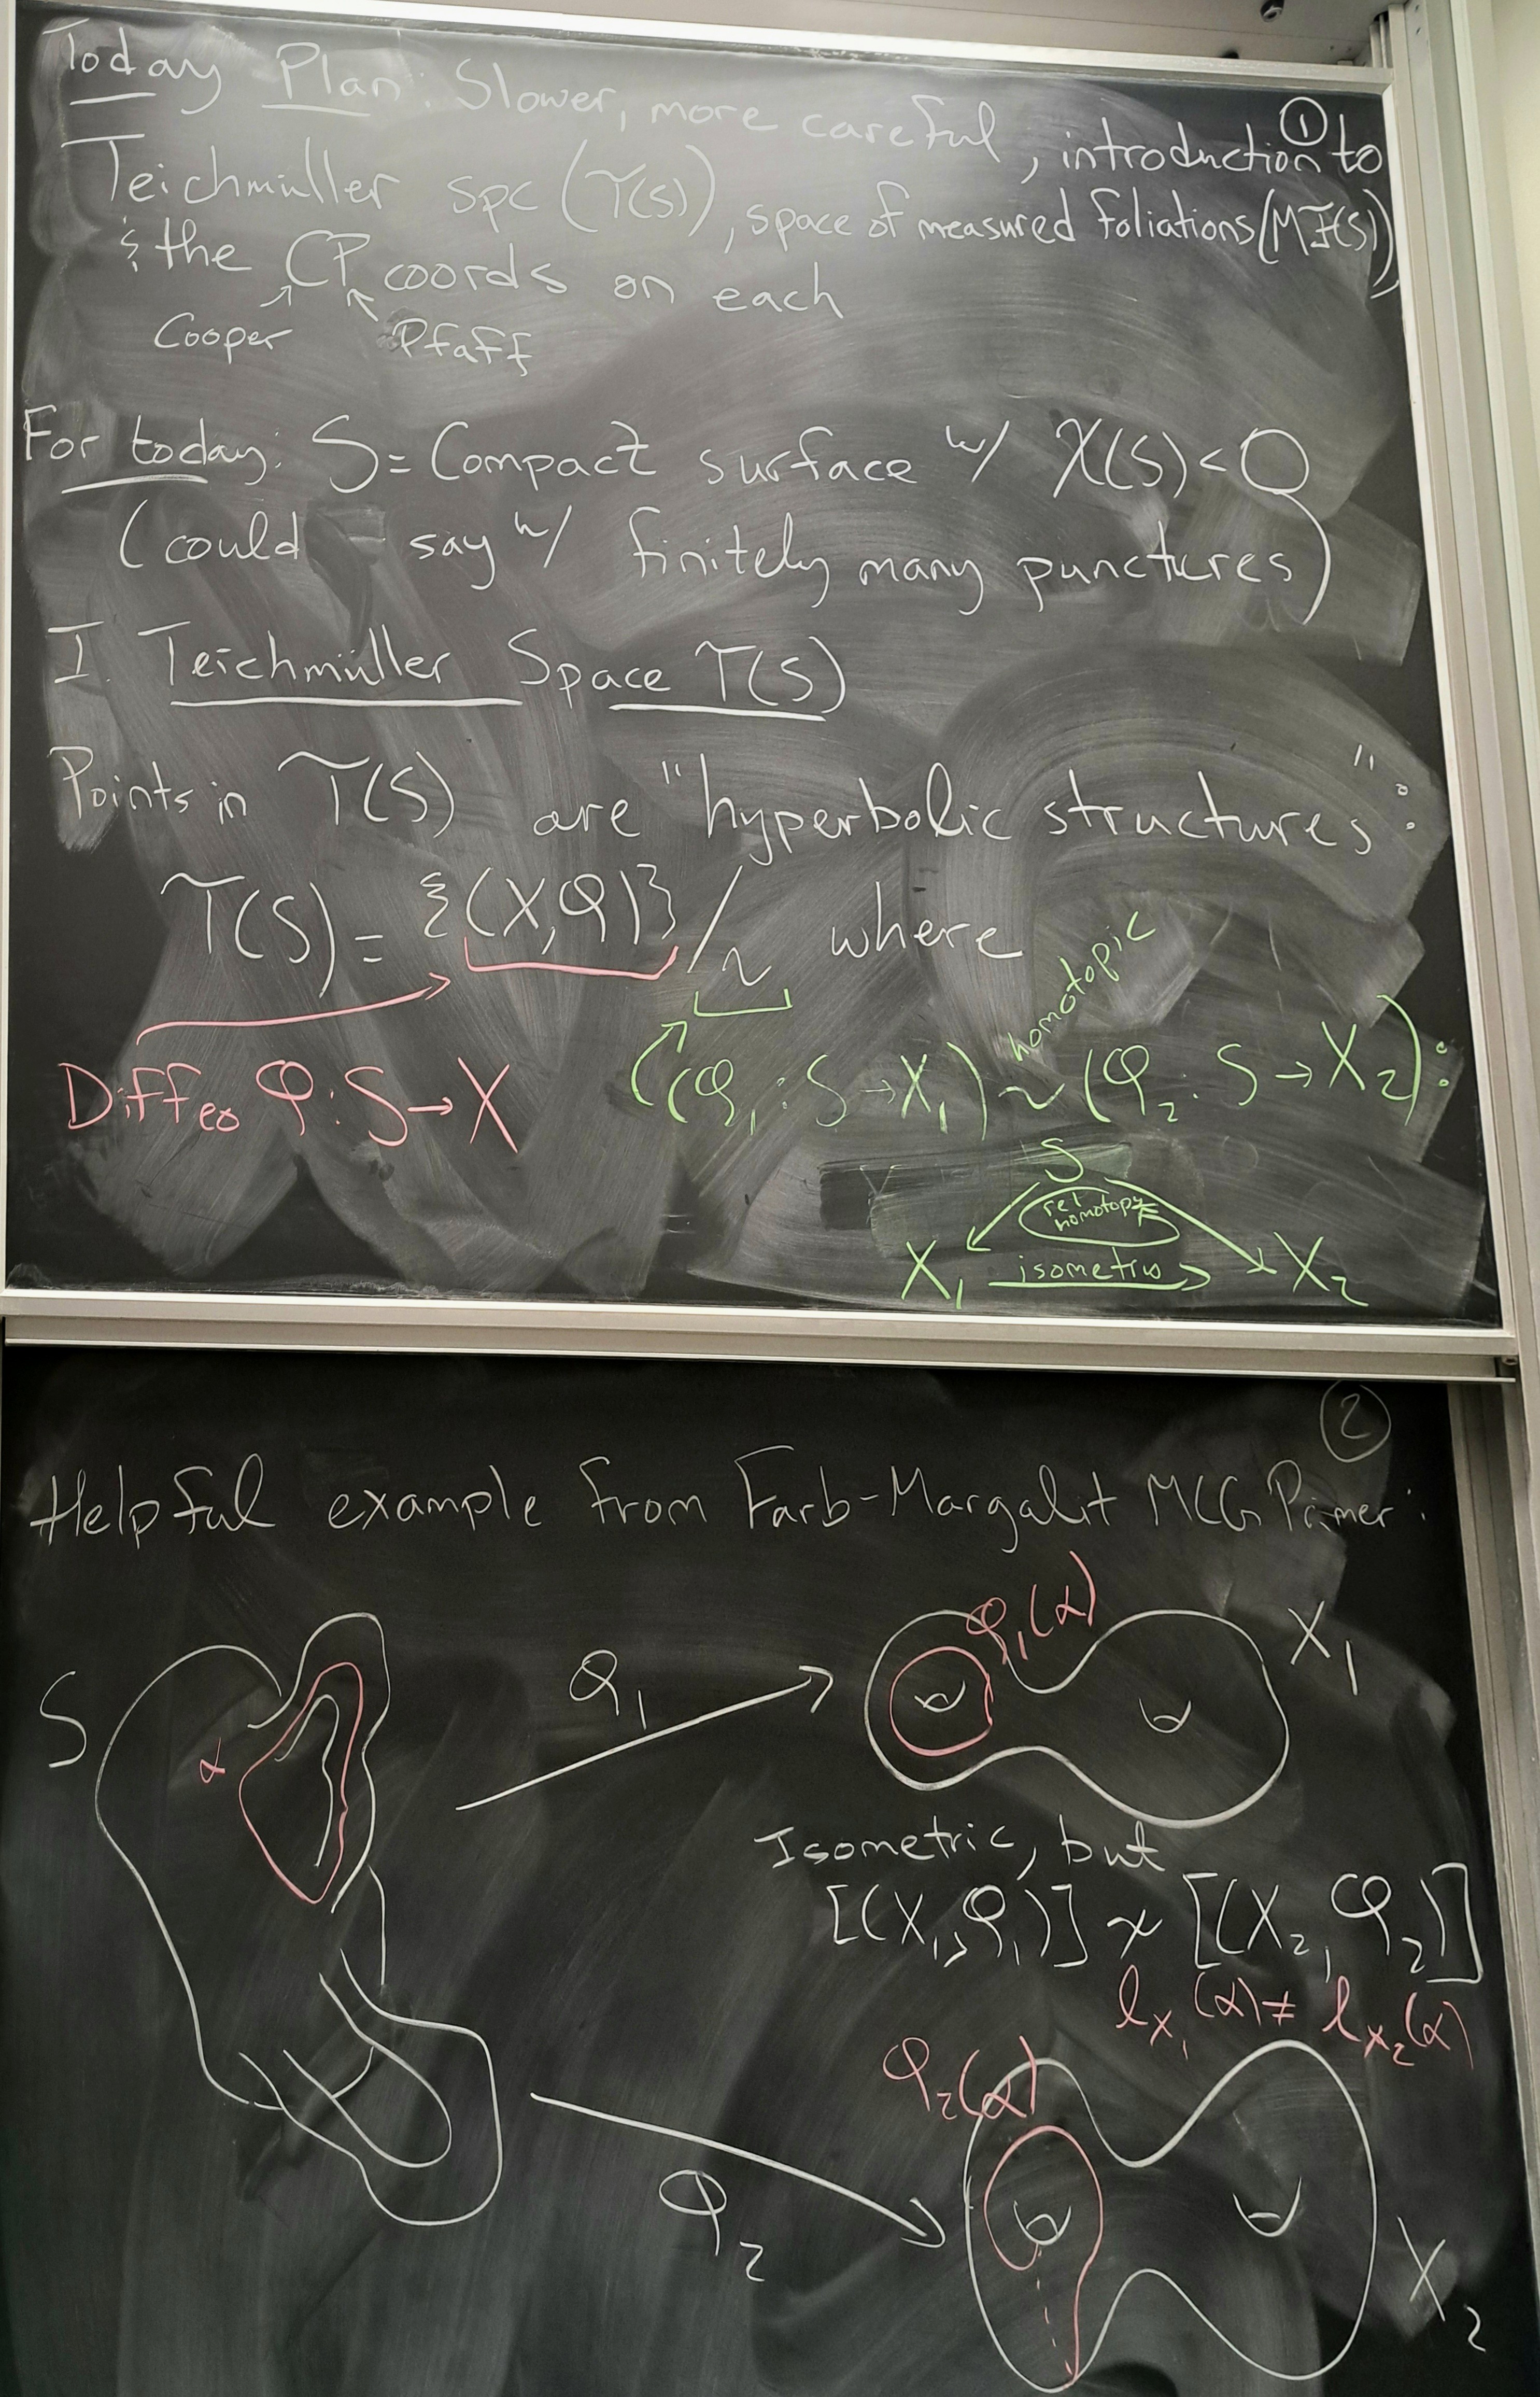 Today Plan: Slower, more careful, introduction to
①
Teichmüller spc (T(S)), space of measured foliations (MF(S)),
& the CP coords on each
Cooper Pfaff
For today: S = Compact surface w/ χ(S) < 0
(could say w/ finitely many punctures)
I. Teichmüller Space T(S)
Points in T(S) are "hyperbolic structures":
T(S) = {(X, φ)}/~ where
homotopic
Diffeo φ: S → X
(φ₁: S → X₁) ~ (φ₂: S → X₂):
S
rel
homotopy
X₁ isometry X₂
②
Helpful example from Farb-Margalit MCG Primer:
S
α
φ₁
φ₁(α)
X₁
Isometric, but
[(X₁, φ₁)] ≁ [(X₂, φ₂)]
ℓ_X₁(α) ≠ ℓ_X₂(α)
φ₂(α)
φ₂
X₂